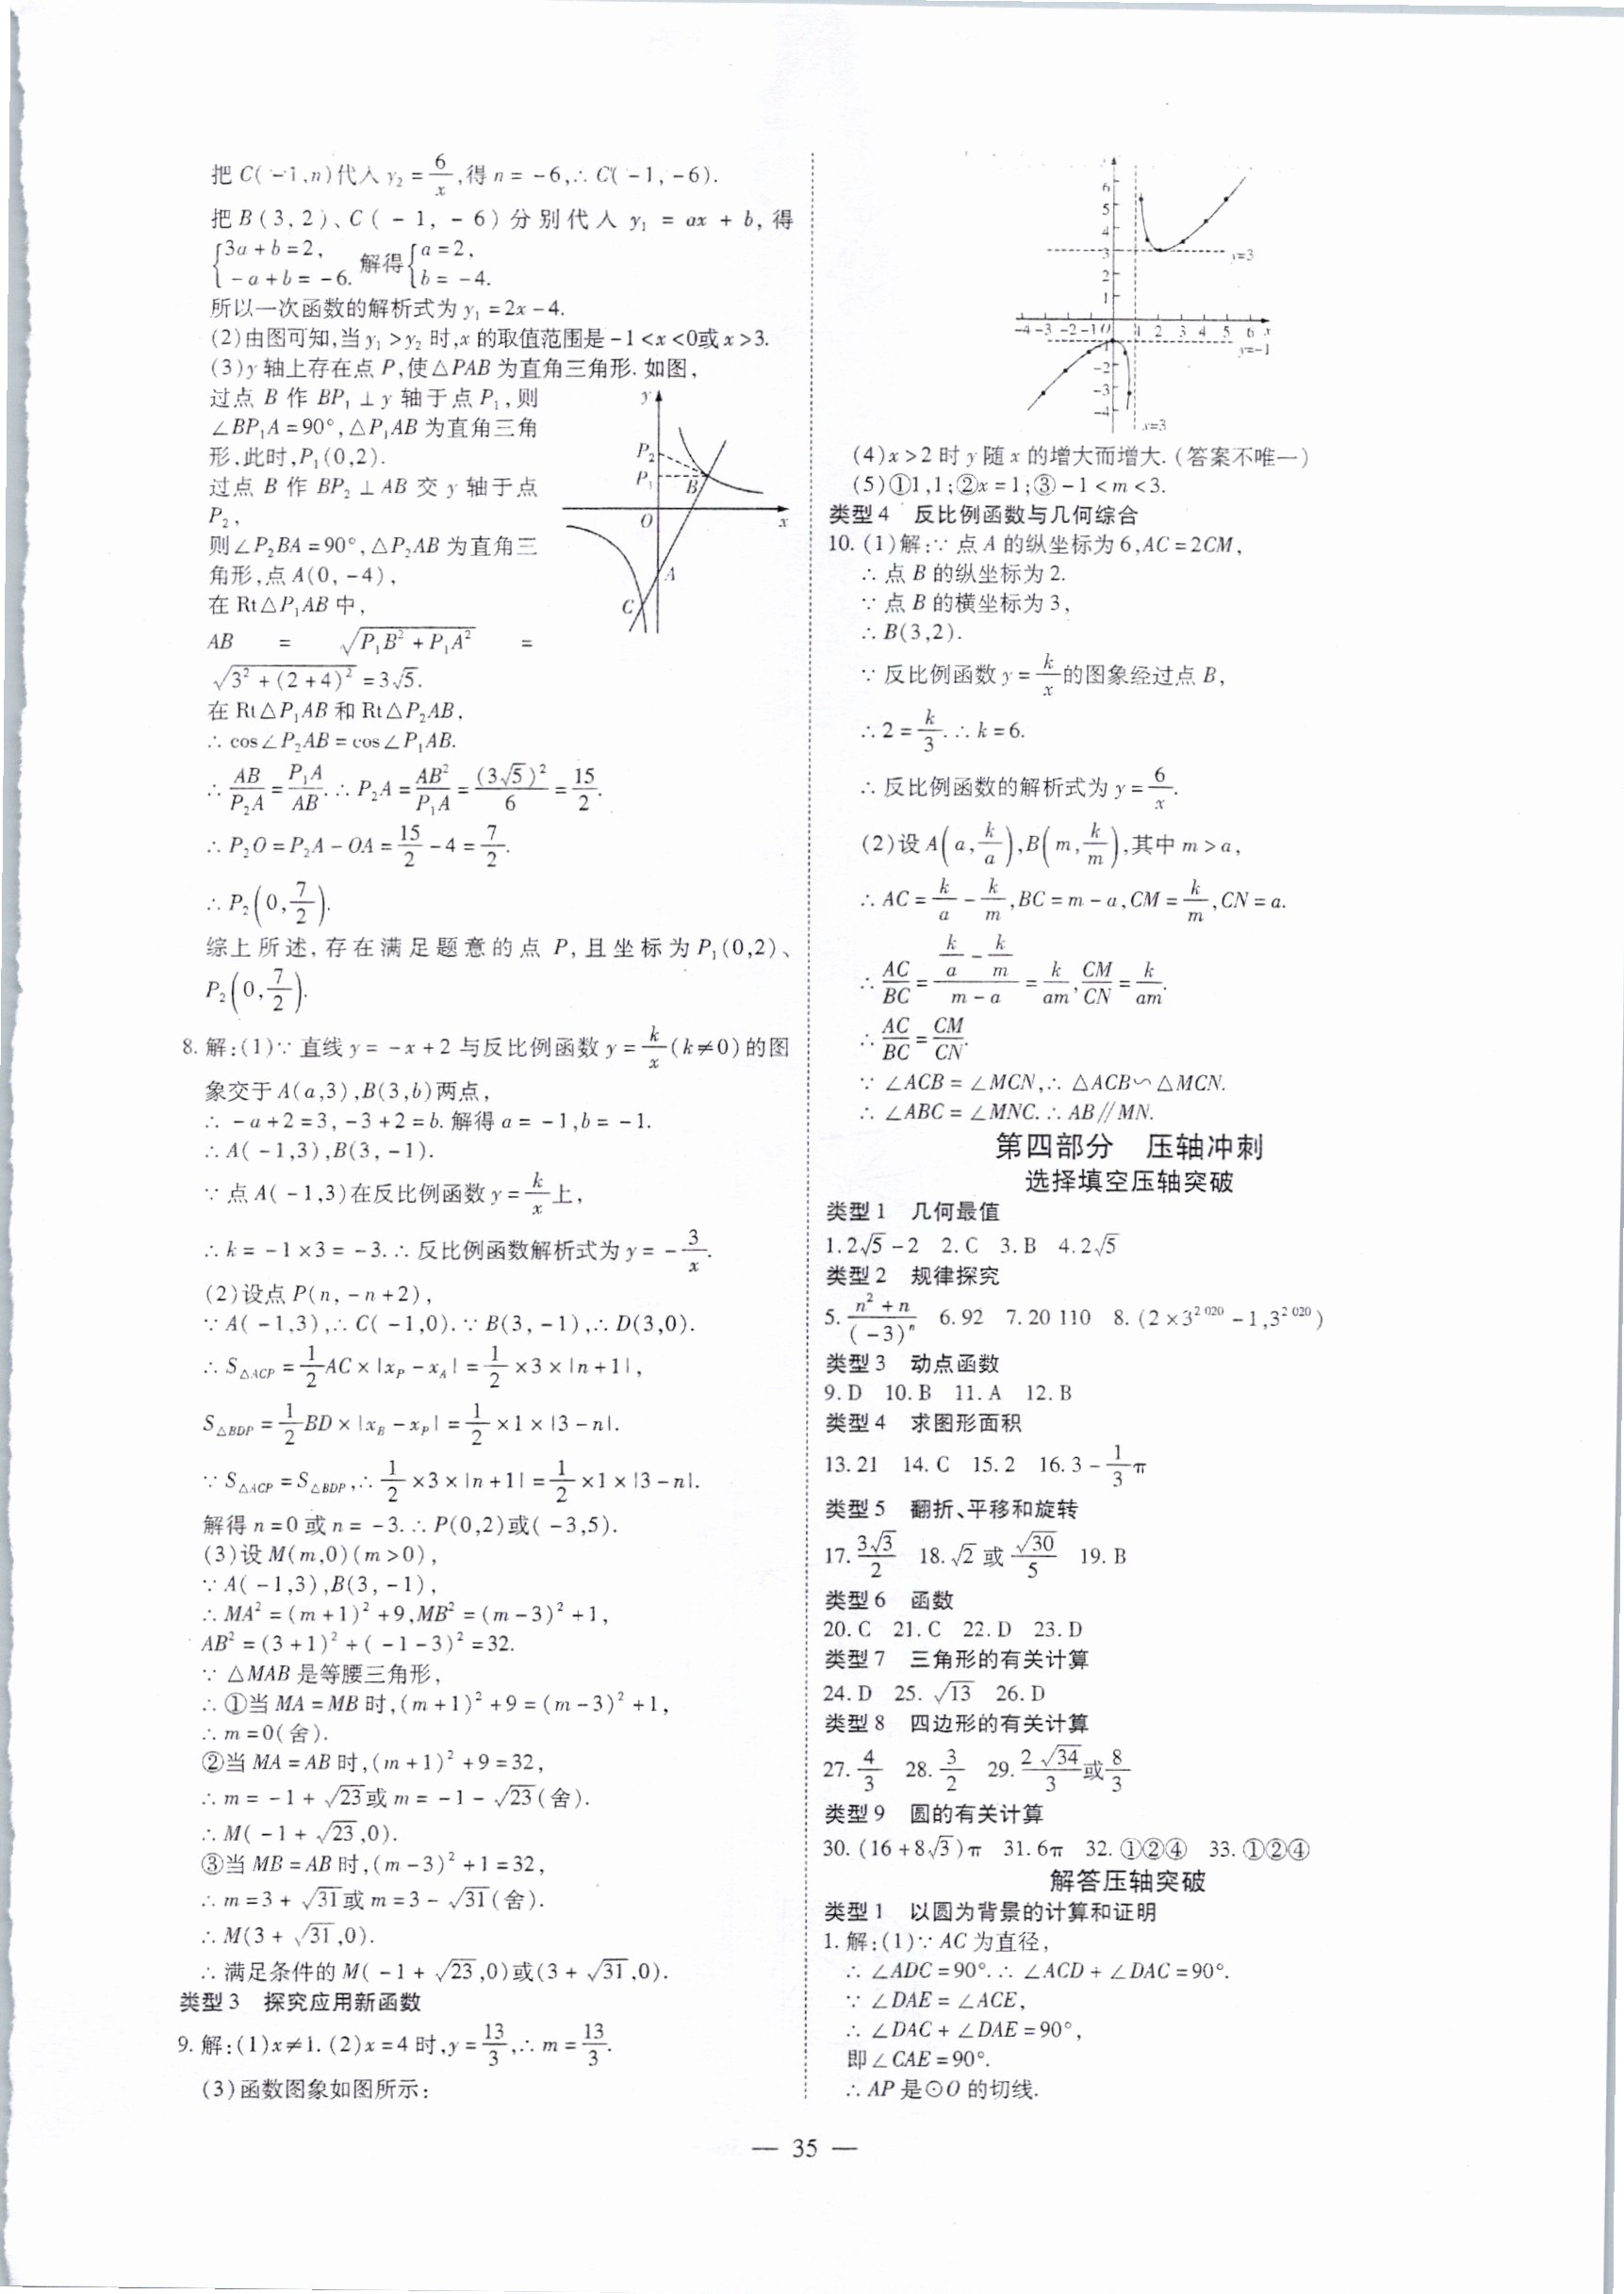 把 C(-1,n)代入 y₂ = 6/x ,得 n = -6,∴ C(-1,-6).
把 B(3,2)、C(-1,-6)分别代入 y₁ = ax + b,得
{3a+b=2, -a+b=-6. 解得{a=2, b=-4.
所以一次函数的解析式为 y₁ =2x-4.
(2)由图可知,当 y₁ >y₂ 时,x 的取值范围是 -1<x<0或 x>3.
(3)y 轴上存在点 P,使△PAB 为直角三角形.如图,
过点 B 作 BP₁⊥y 轴于点 P₁,则
∠BP₁A=90°,△P₁AB 为直角三角
形.此时,P₁(0,2).
过点 B 作 BP₂⊥AB 交 y 轴于点
P₂,
则∠P₂BA=90°,△P₂AB 为直角三
角形,点 A(0,-4),
在 Rt△P₁AB 中,
AB = √(P₁B²+P₁A²) =
√(3²+(2+4)²) =3√5.
在 Rt△P₁AB 和 Rt△P₂AB,
∴ cos∠P₂AB=cos∠P₁AB.
∴ AB/P₂A = P₁A/AB. ∴ P₂A = AB²/P₁A = (3√5)²/6 = 15/2.
∴ P₂O=P₂A-OA= 15/2 -4= 7/2.
∴ P₂(0, 7/2).
综上所述,存在满足题意的点 P,且坐标为 P₁(0,2)、
P₂(0, 7/2).
y
P₂
P₁
B
O
x
A
C
8. 解:(1)∵ 直线 y=-x+2 与反比例函数 y= k/x (k≠0)的图
象交于 A(a,3),B(3,b)两点,
∴ -a+2=3,-3+2=b. 解得 a=-1,b=-1.
∴ A(-1,3),B(3,-1).
∵ 点 A(-1,3)在反比例函数 y= k/x 上,
∴ k=-1×3=-3.∴ 反比例函数解析式为 y=- 3/x.
(2)设点 P(n,-n+2),
∵ A(-1,3),∴ C(-1,0).∵ B(3,-1),∴ D(3,0).
∴ S△ACP = 1/2 AC×|xP-xA| = 1/2 ×3×|n+1|,
S△BDP = 1/2 BD×|xB-xP| = 1/2 ×1×|3-n|.
∵ S△ACP=S△BDP,∴ 1/2 ×3×|n+1| = 1/2 ×1×|3-n|.
解得 n=0 或 n=-3.∴ P(0,2)或(-3,5).
(3)设 M(m,0)(m>0),
∵ A(-1,3),B(3,-1),
∴ MA²=(m+1)²+9,MB²=(m-3)²+1,
AB²=(3+1)²+(-1-3)²=32.
∵ △MAB 是等腰三角形,
∴ ①当 MA=MB 时,(m+1)²+9=(m-3)²+1,
∴ m=0(舍).
②当 MA=AB 时,(m+1)²+9=32,
∴ m=-1+√23或 m=-1-√23(舍).
∴ M(-1+√23,0).
③当 MB=AB 时,(m-3)²+1=32,
∴ m=3+√31或 m=3-√31(舍).
∴ M(3+√31,0).
∴ 满足条件的 M(-1+√23,0)或(3+√31,0).
类型3 探究应用新函数
9. 解:(1)x≠1.(2)x=4 时,y= 13/3,∴ m= 13/3.
(3)函数图象如图所示:
y
6
5
4
3
2
1
y=3
-4 -3 -2 -1 O 1 2 3 4 5 6 x
y=-1
-2
-3
-4
x=3
(4)x>2 时 y 随 x 的增大而增大.(答案不唯一)
(5)①1,1;②x=1;③-1<m<3.
类型4 反比例函数与几何综合
10. (1)解:∵ 点 A 的纵坐标为 6,AC=2CM,
∴ 点 B 的纵坐标为 2.
∵ 点 B 的横坐标为 3,
∴ B(3,2).
∵ 反比例函数 y= k/x 的图象经过点 B,
∴ 2= k/3.∴ k=6.
∴ 反比例函数的解析式为 y= 6/x.
(2)设 A(a, k/a),B(m, k/m),其中 m>a,
∴ AC= k/a - k/m,BC=m-a,CM= k/m,CN=a.
∴ AC/BC = (k/a - k/m)/(m-a) = k/am, CM/CN = k/am.
∴ AC/BC = CM/CN.
∵ ∠ACB=∠MCN,∴ △ACB∽△MCN.
∴ ∠ABC=∠MNC.∴ AB∥MN.
第四部分 压轴冲刺
选择填空压轴突破
类型1 几何最值
1. 2√5-2 2. C 3. B 4. 2√5
类型2 规律探究
5. (n²+n)/(-3)ⁿ 6. 92 7. 20 110 8. (2×3^{2 020}-1,3^{2 020})
类型3 动点函数
9. D 10. B 11. A 12. B
类型4 求图形面积
13. 21 14. C 15. 2 16. 3- 1/3 π
类型5 翻折、平移和旋转
17. 3√3/2 18. √2 或 √30/5 19. B
类型6 函数
20. C 21. C 22. D 23. D
类型7 三角形的有关计算
24. D 25. √13 26. D
类型8 四边形的有关计算
27. 4/3 28. 3/2 29. 2√34/3 或 8/3
类型9 圆的有关计算
30. (16+8√3)π 31. 6π 32. ①②④ 33. ①②④
解答压轴突破
类型1 以圆为背景的计算和证明
1. 解:(1)∵ AC 为直径,
∴ ∠ADC=90°.∴ ∠ACD+∠DAC=90°.
∵ ∠DAE=∠ACE,
∴ ∠DAC+∠DAE=90°,
即∠CAE=90°.
∴ AP 是⊙O 的切线.
— 35 —